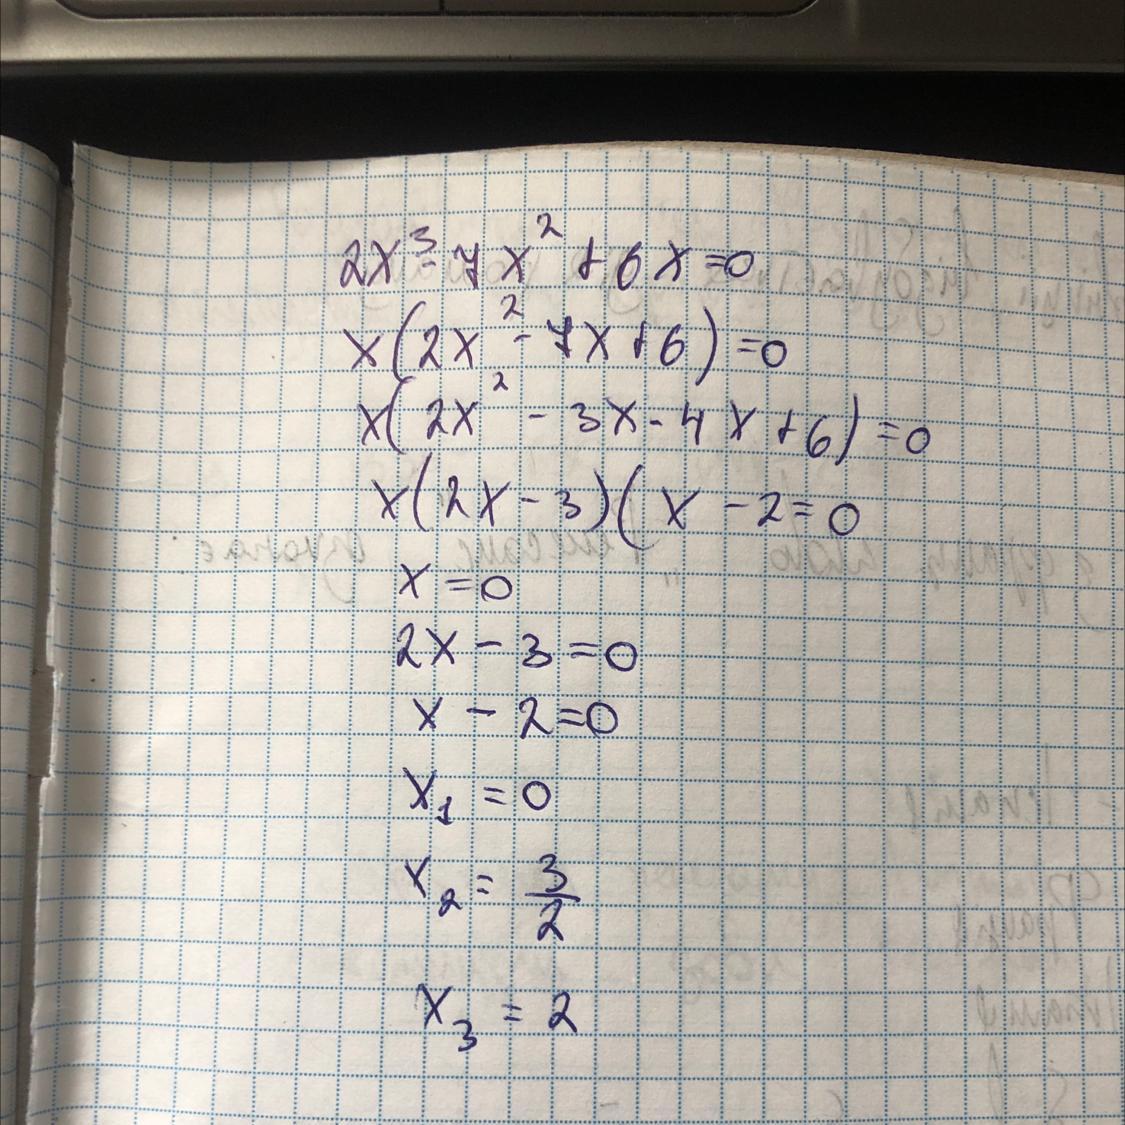 2x³-7x²+6x=0
x(2x²-7x+6)=0
x(2x²-3x-4x+6)=0
x(2x-3)(x-2=0
x=0
2x-3=0
x-2=0
x₁=0
x₂=3/2
x₃=2